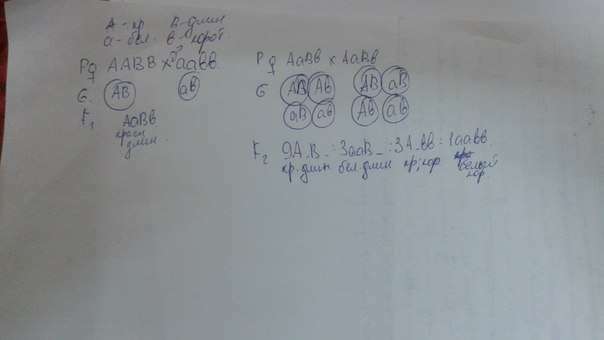 А - кр В - длин
а - бел. в - корот.
P ♀ AABB × ♂ аавв.
G. AB ав
F₁ АаВв
красн
длин
P ♀ АаВв × АаВв
G АВ Ав АВ аВ
аВ ав Ав ав
F₂ 9А_В_ : 3ааВ_ : 3А_вв : 1аавв.
кр. длин бел. длин кр, кор белый
кор.